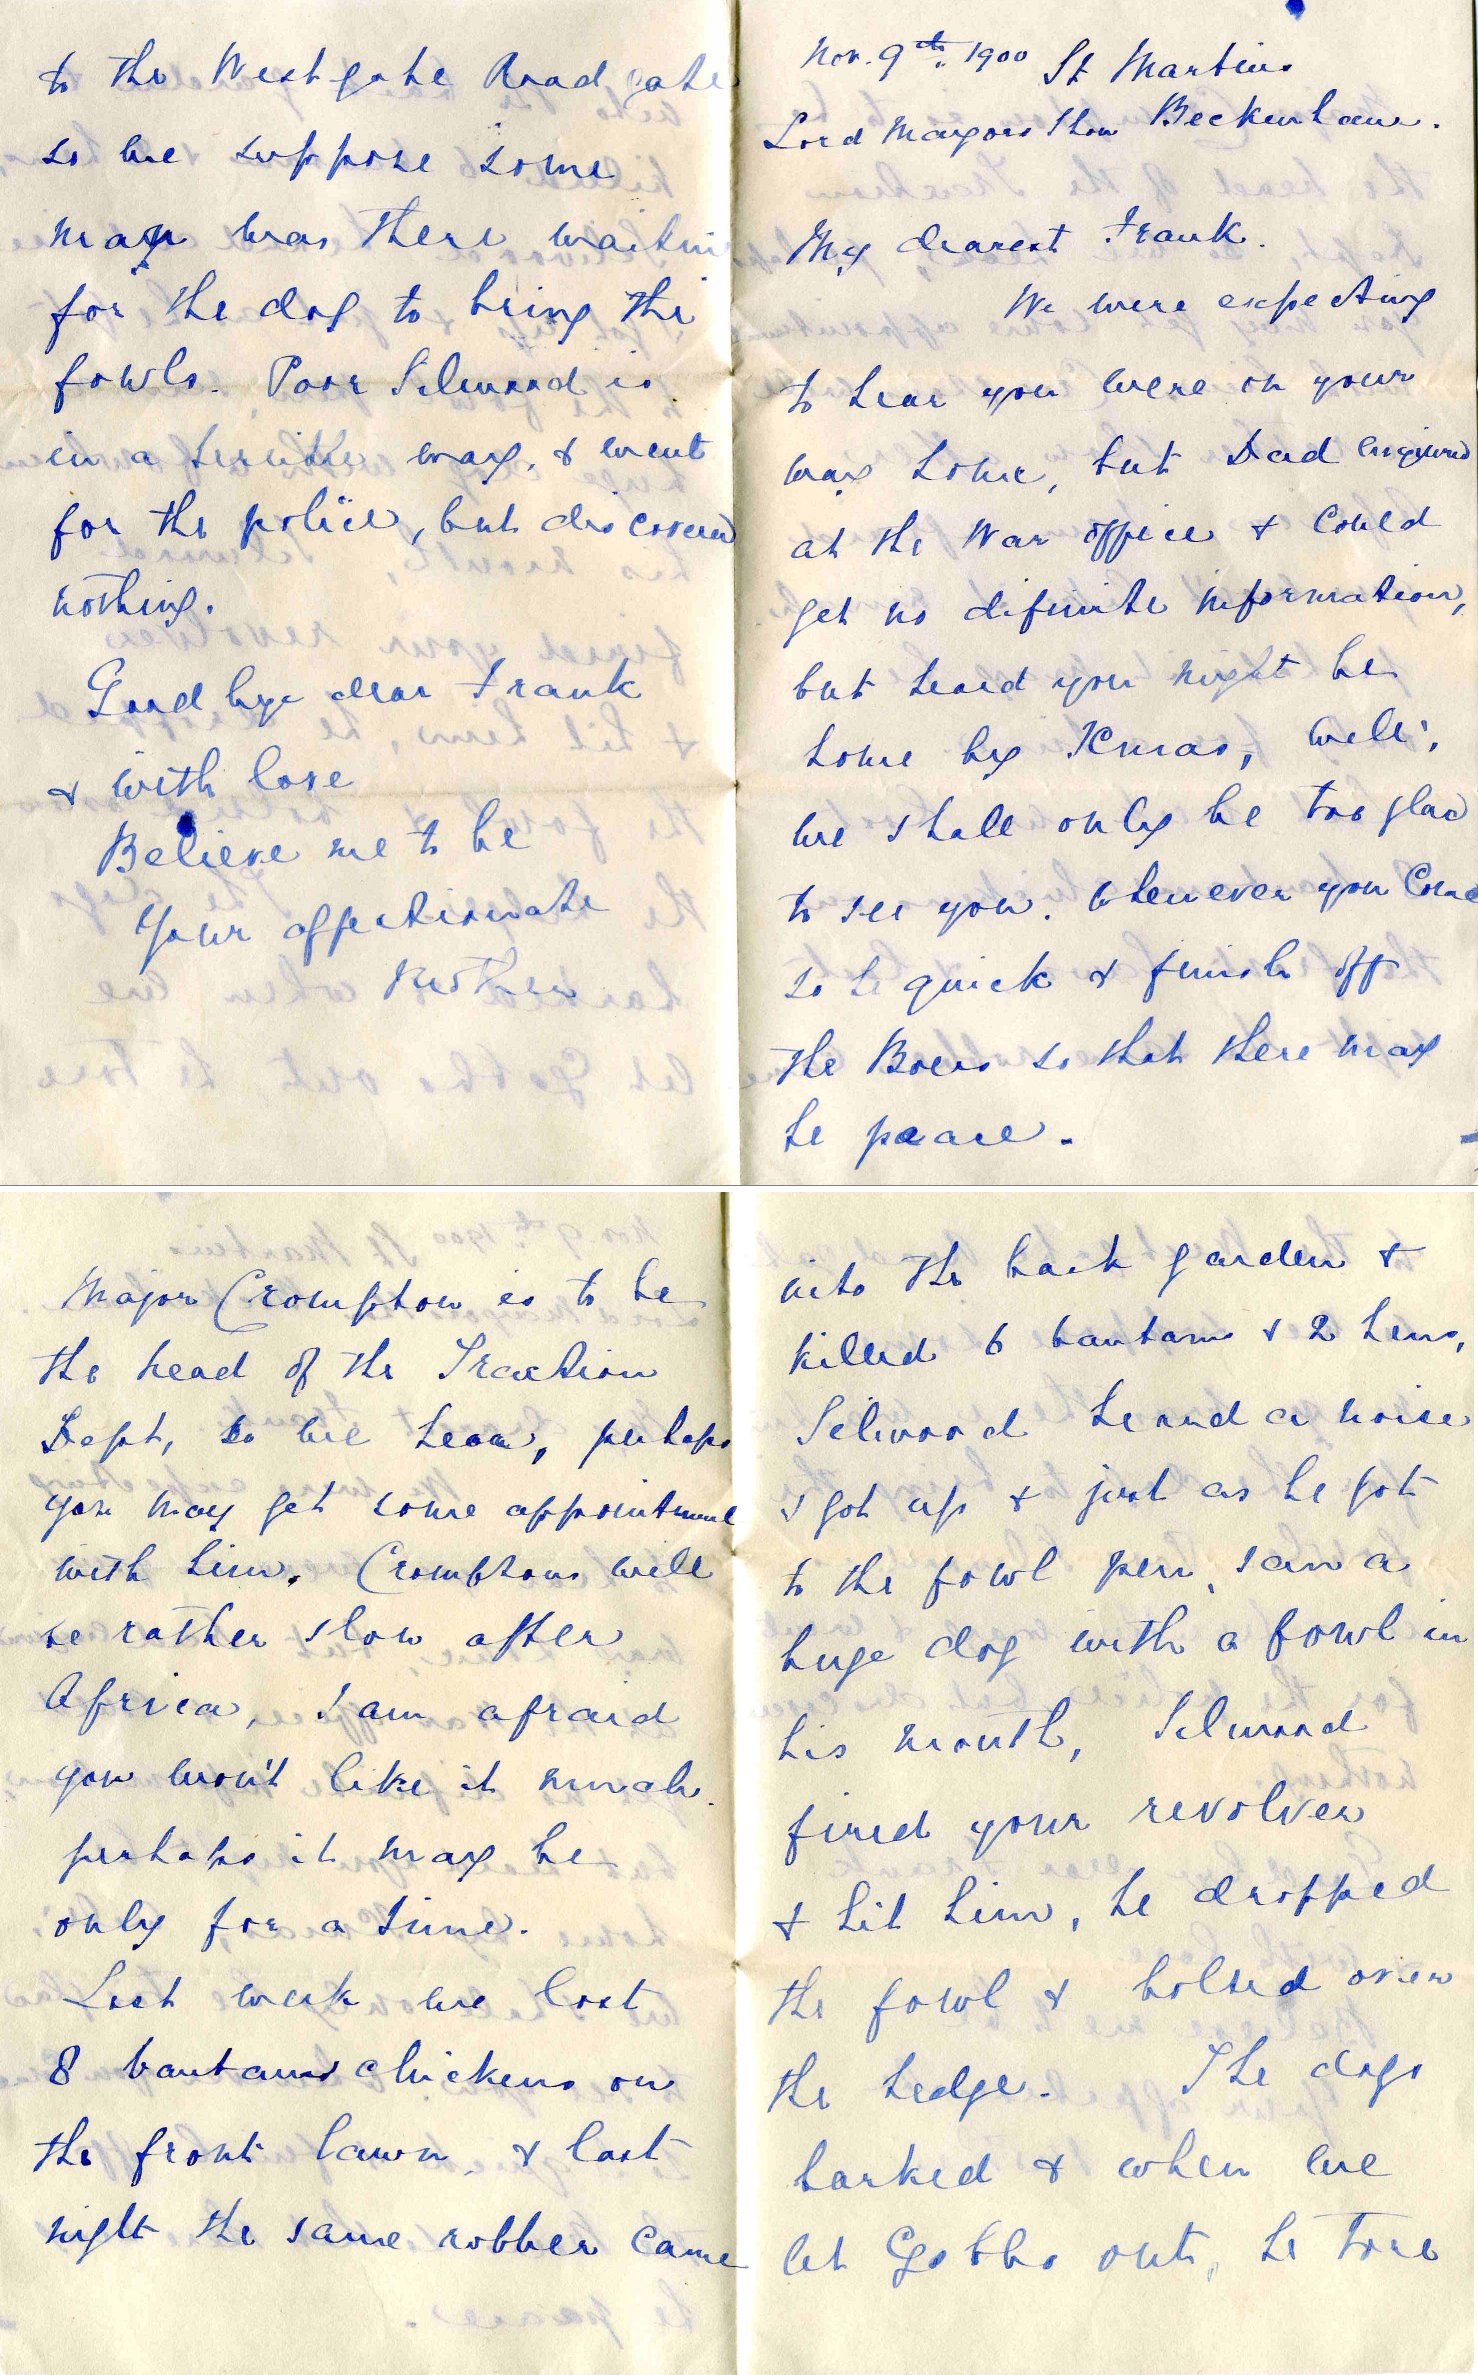 Nov. 9th. 1900 St Martins
Lord Mayors Show Beckenham.
My dearest Frank.
We were expecting
to hear you were on your
way home, but Dad enquired
at the War office & could
get no difinite information,
but heard you might be
home by Xmas, well,
we shall only be too glad
to see you. whenever you come
so be quick & finish off
the Boers so that there may
be peace.
Major Crompton is to be
the head of the Traction
Dept, so we hear, perhaps
you may get some appointment
with him. Cromptons will
be rather slow after
Africa, I am afraid
you won't like it much.
perhaps it may be
only for a time.
Last week we lost
8 bantams chickens on
the front lawn & last
night the same robber came
into the back garden &
killed 6 bantams & 2 hens,
Silwood heard a noise
& got up & just as he got
to the fowl pen, saw a
huge dog with a fowl in
his mouth, Silwood
fired your revolver
& hit him, he dropped
the fowl & bolted over
the hedge. The dogs
barked & when we
let Gobbo out, he tore
to the Westgate Road gate
so we suppose some
man was there waiting
for the dog to bring the
fowls. Poor Silwood is
in a terrible way, & went
for the police, but discovered
nothing.
Good bye dear Frank
& with love
Believe me to be
Your affectionate
Mother